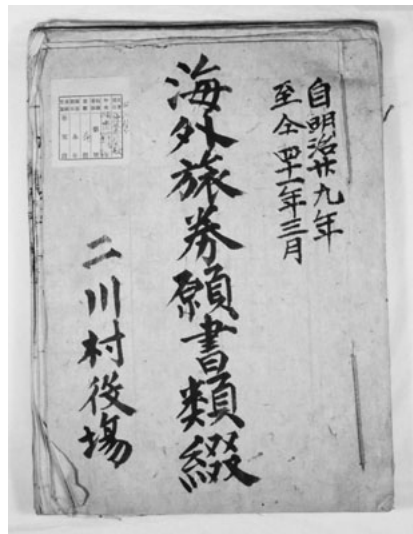 自明治廿九年
至仝四十一年三月
海外旅券願書類綴
二川村役場